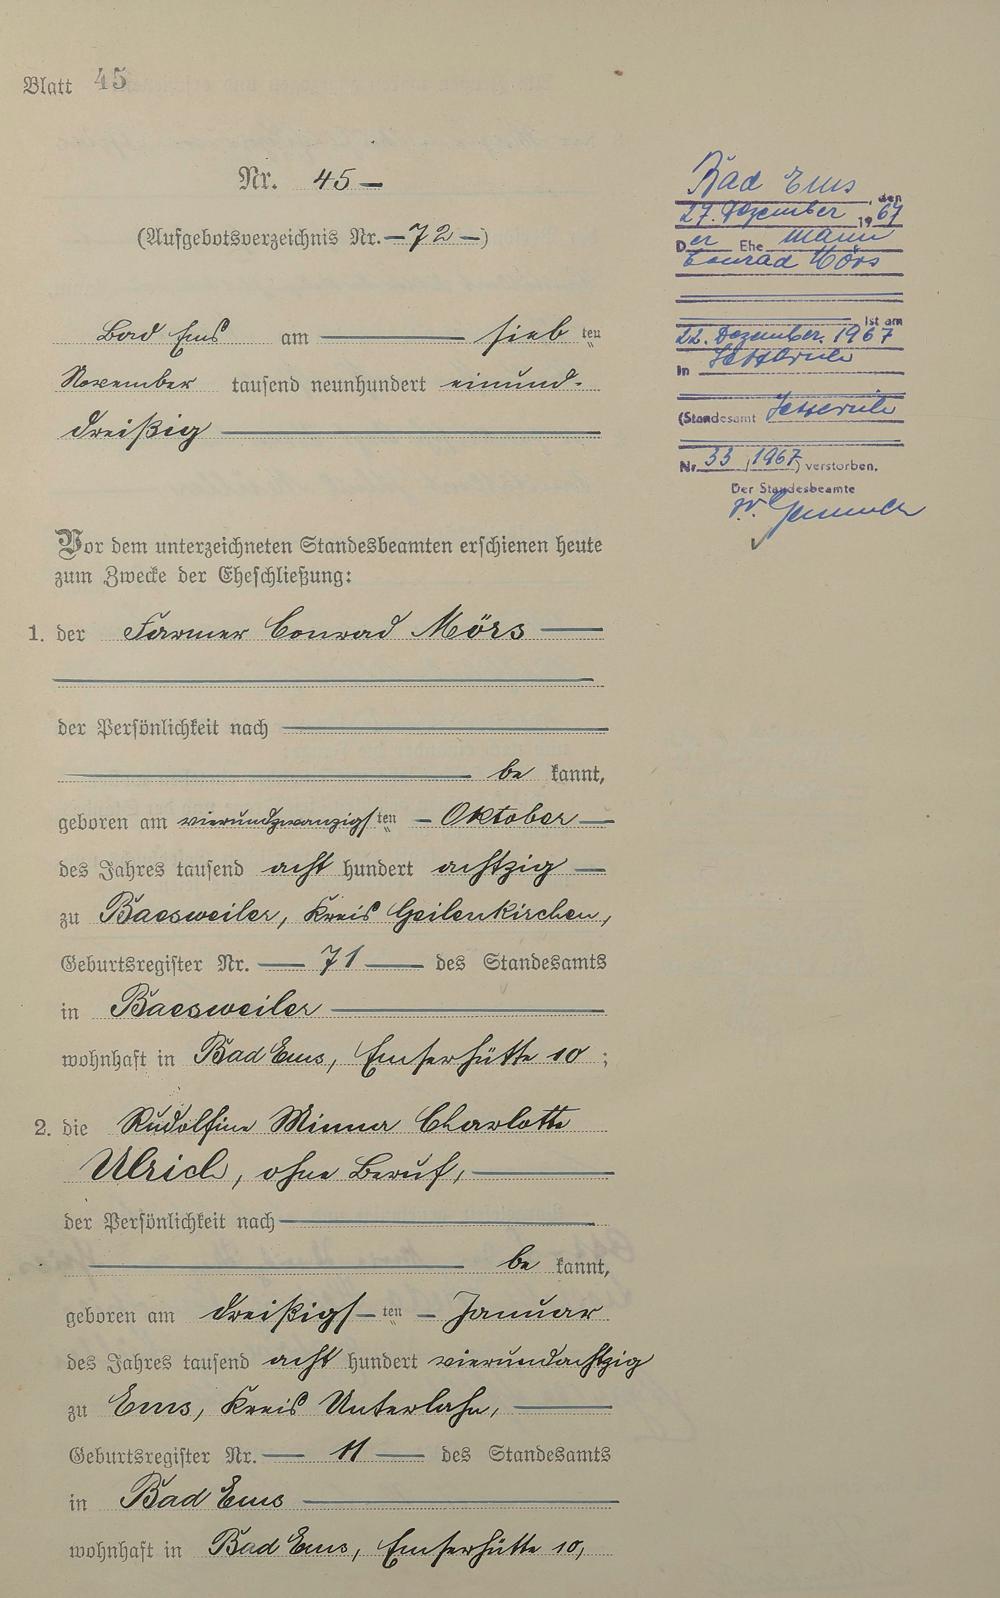 Blatt 45
Nr. 45
(Aufgebotsverzeichnis Nr. 72)
Bad Ems am sieb ten
November tausend neunhundert einund-
dreißig
Vor dem unterzeichneten Standesbeamten erschienen heute
zum Zwecke der Eheschließung:
1. der Farmer Conrad Mörs
der Persönlichkeit nach
be kannt,
geboren am vierundzwanzigs ten Oktober
des Jahres tausend acht hundert achtzig
zu Baesweiler, Kreis Geilenkirchen,
Geburtsregister Nr. 71 des Standesamts
in Baesweiler
wohnhaft in Bad Ems, Emserhütte 10;
2. die Rudolfine Minna Charlotte
Ulrich, ohne Beruf,
der Persönlichkeit nach
be kannt,
geboren am dreißigs ten Januar
des Jahres tausend acht hundert vierundachtzig
zu Ems, Kreis Unterlahn,
Geburtsregister Nr. 11 des Standesamts
in Bad Ems
wohnhaft in Bad Ems, Emserhütte 10,
Bad Ems, den
27. Dezember 1967
Der Ehe mann
Conrad Mörs
ist am
22. Dezember 1967
in
(Standesamt
Nr. 33/1967) verstorben.
Der Standesbeamte